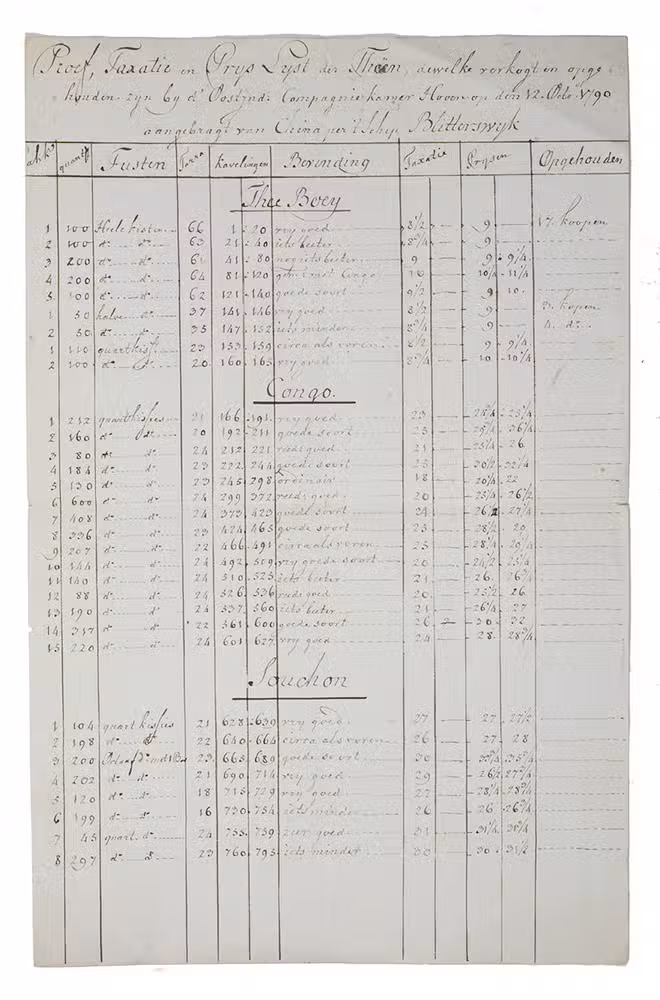 Proef, Taxatie en Prys Lyst der Theën, dewelke verkogt en opge
houden zyn by d' Oostind: Compagnie kamer Hoorn op den 12. Octo: 1790
aangebragt van China per 't Schip Blitterswyk
quantt Fusten Tarra Kavelingen Bevinding Taxatie Prysen Opgehouden
Thee Boey
1 100 Heele kisten 66 1 - 20 vry goed 8 1/2 9 17. koopen
2 100 d° d° 63 21 - 40 iets beeter 8 3/4 9
3 200 d° d° 61 41 - 80 nog iets beeter 9 9 - 9 1/4
4 200 d° d° 64 81 - 120 10 10 1/4 - 11 1/4
5 100 d° d° 62 121 - 140 goede soort 9 1/2 9 - 10
1 50 halve d° 37 141 - 146 vry goed 8 1/2 9 3. kopen
2 50 d° d° 35 147 - 152 iets minder 8 1/4 9 4. d°
1 110 quart kist 23 153 - 159 circa als voren 8 1/2 9 - 9 1/4
2 100 d° d° 20 160 - 165 vry goed 8 3/4 10 - 10 1/4
Congo.
1 212 quart kistjes 21 166 - 191 vry goed 23
2 160 d° d° 20 192 - 211 goede soort 25
3 80 d° d° 24 212 - 221 reedl: goed 21 25 1/4 - 26
4 184 d° d° 23 222 - 244 goede soort 25 30 1/2 - 32 1/4
5 130 d° d° 23 245 - 298 ordinair 18 20 1/4 - 22
6 600 d° d° 24 299 - 372 reedl: goed 20 25 1/4 - 26 1/2
7 408 d° d° 24 373 - 423 goede soort 24 26 1/2 - 27 1/4
8 336 d° d° 23 424 - 465 goede soort 25 28 1/2 - 29
9 207 d° d° 22 466 - 491 circa als voren 25 28 1/4 - 29 1/4
10 144 d° d° 24 492 - 509 vry goede soort 20 24 1/2 - 25 1/4
11 140 d° d° 24 510 - 525 iets beeter 21 26 - 26 3/4
12 88 d° d° 24 526 - 536 reedl: goed 20 25 1/2 - 26
13 190 d° d° 24 537 - 560 iets beeter 21 26 1/4 - 27
14 317 d° d° 22 561 - 600 goede soort 26 30 - 32
15 220 d° d° 24 601 - 627 vry goed 24 28 - 28 3/4
Souchon
1 104 quart kistjes 21 628 - 639 vry goed 27 27 - 27 1/2
2 198 d° d° 22 640 - 664 circa als voren 26 27 - 28
3 200 23 665 - 689 goede soort 30
4 202 d° d° 21 690 - 714 vry goed 29 26 1/2 - 27 3/4
5 120 d° d° 18 715 - 729 vry goed 27 28 1/4 - 28 3/4
6 199 d° d° 16 730 - 754 iets minder 26 26 - 26 3/4
7 45 quart d° 24 755 - 759 zeer goed 31 31 1/4 - 30 3/4
8 297 d° d° 23 760 - 795 iets minder 30 30 - 31 1/2